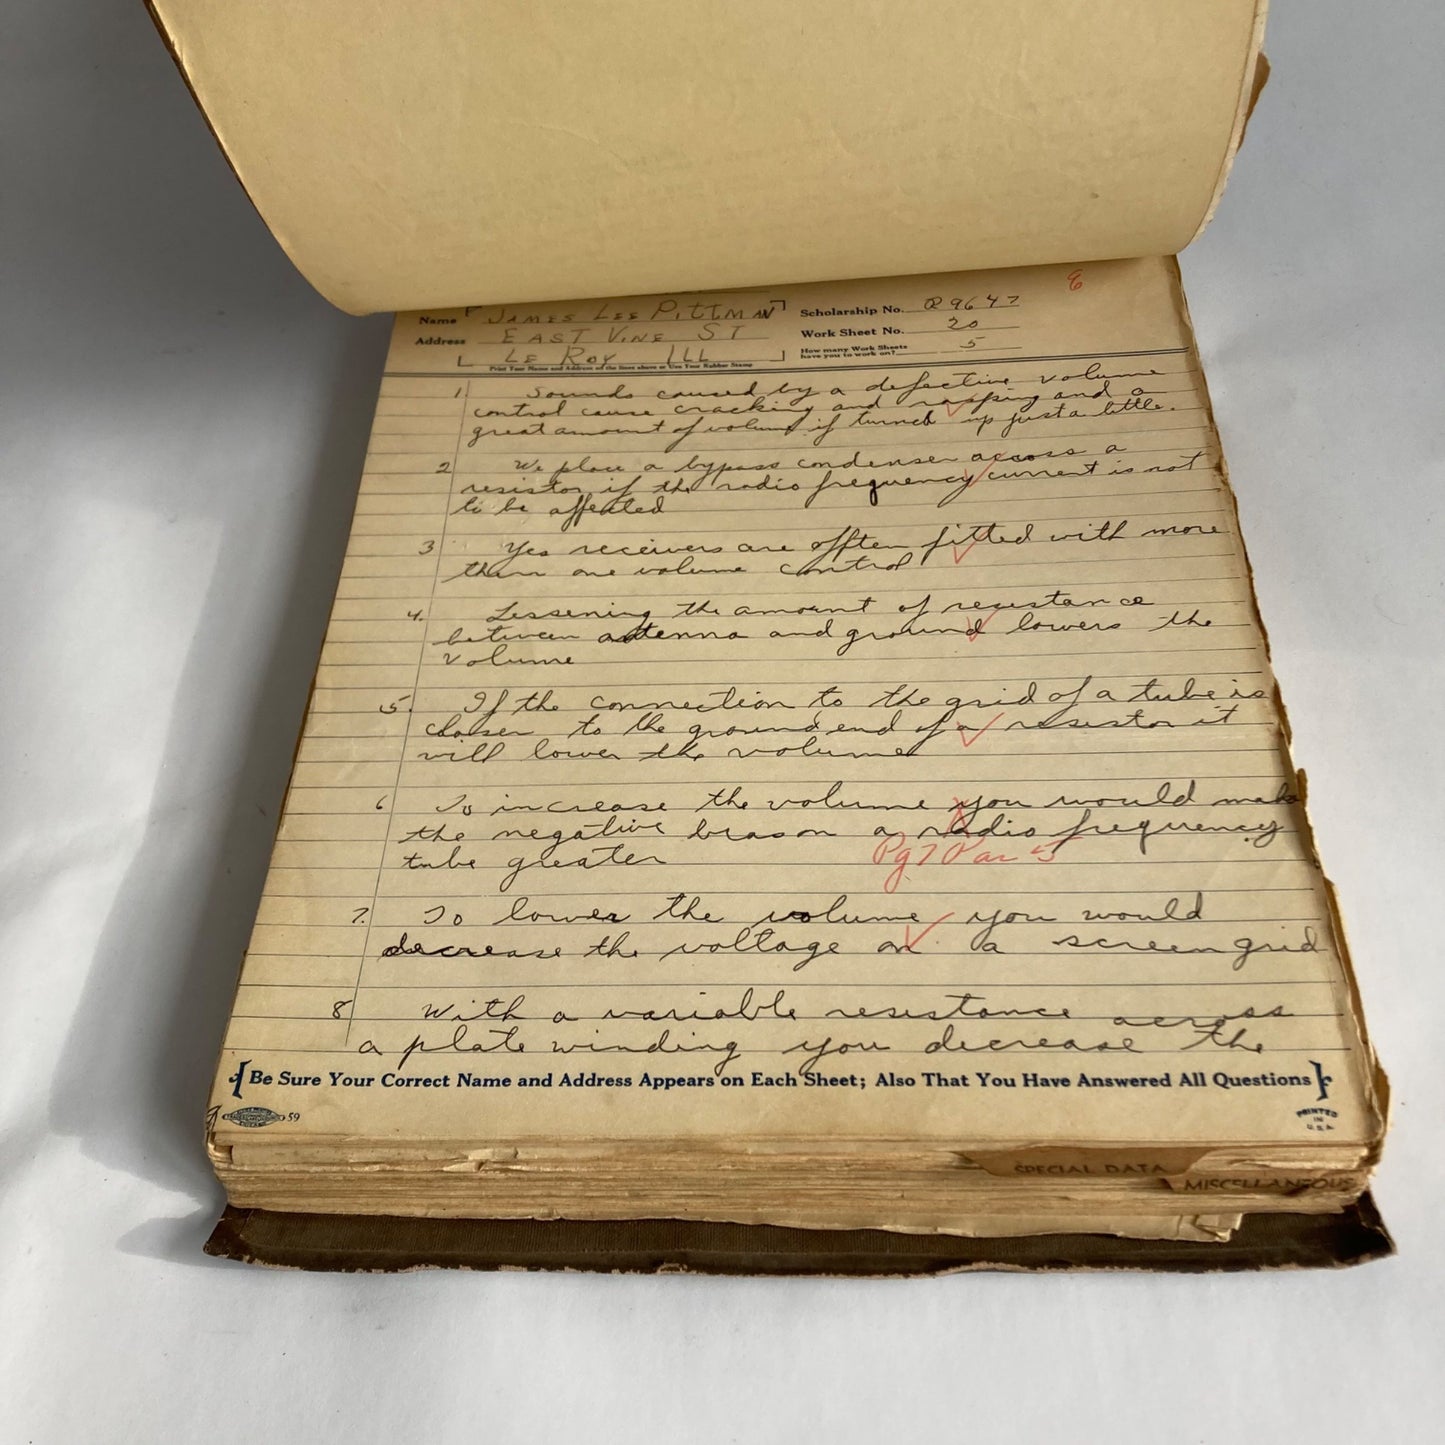 8
Name JAMES LEE PITTMAN Scholarship No. Q9647
Address EAST VINE ST Work Sheet No. 20
LE ROY ILL How many Work Sheets have you to work on? 5
Print Your Name and Address of the lines above or Use Your Rubber Stamp
1. Sounds caused by a defective volume
control cause cracking and rasping and a
great amount of volume if turned up just a little.
2 We place a bypass condenser across a
resistor if the radio frequency current is not
to be affected
3 Yes receivers are offten fitted with more
than one volume control
4. Lessening the amount of resistance
between antenna and ground lowers the
volume
5. If the connection to the grid of a tube is
closer to the ground end of a resistor it
will lower the volume
6 To increase the volume you would make
the negative bias on a radio frequency
tube greater Pg 7 Par 5
7. To lower the volume you would
decrease the voltage on a screen grid
8 With a variable resistance across
a plate winding you decrease the
Be Sure Your Correct Name and Address Appears on Each Sheet; Also That You Have Answered All Questions
59 PRINTED IN U.S.A.
SPECIAL DATA
MISCELLANEOUS